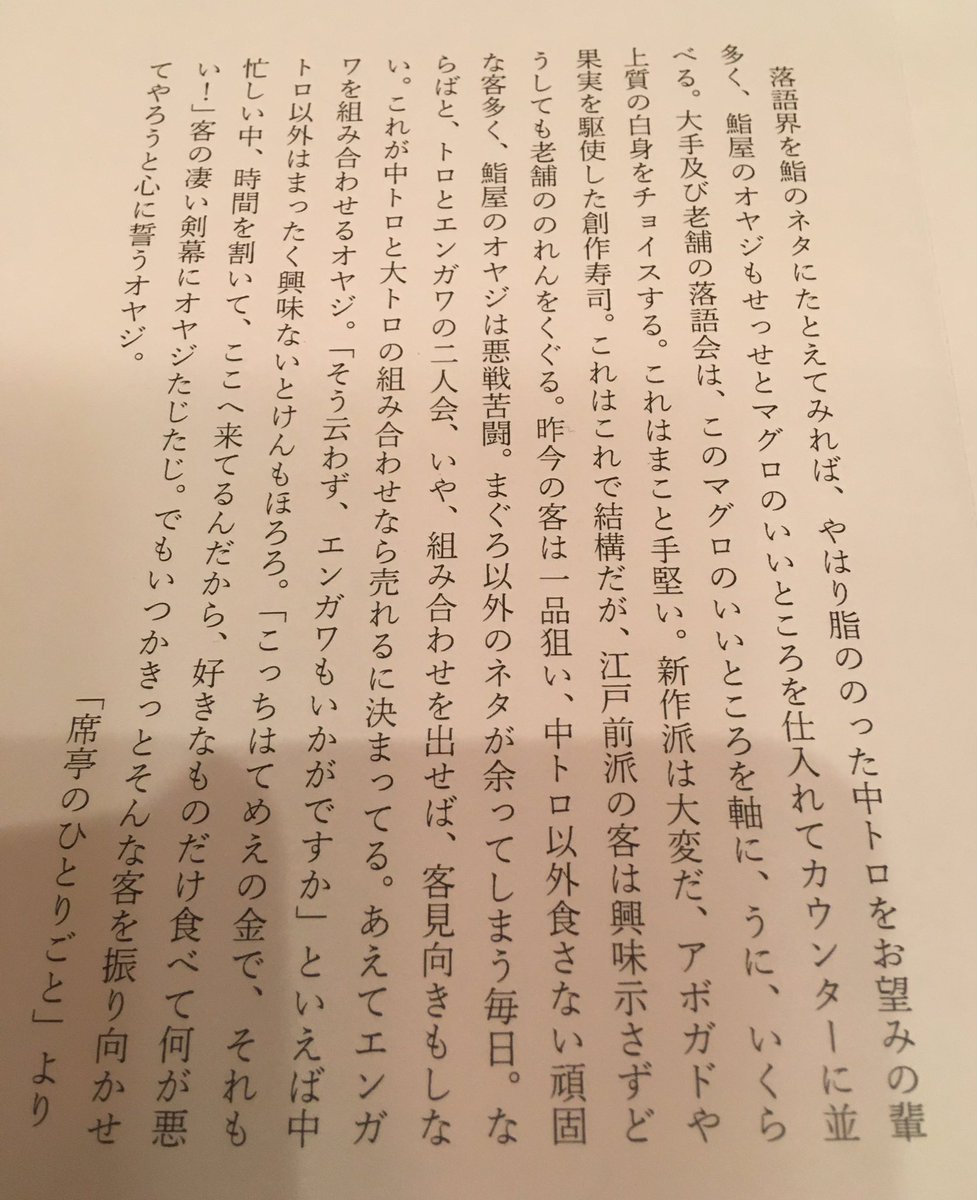 落語界を鮨のネタにたとえてみれば、やはり脂ののった中トロをお望みの輩
多く、鮨屋のオヤジもせっせとマグロのいいところを仕入れてカウンターに並
べる。大手及び老舗の落語会は、このマグロのいいところを軸に、うに、いくら
上質の白身をチョイスする。これはまこと手堅い。新作派は大変だ、アボガドや
果実を駆使した創作寿司。これはこれで結構だが、江戸前派の客は興味示さずど
うしても老舗ののれんをくぐる。昨今の客は一品狙い、中トロ以外食さない頑固
な客多く、鮨屋のオヤジは悪戦苦闘。まぐろ以外のネタが余ってしまう毎日。な
らばと、トロとエンガワの二人会、いや、組み合わせを出せば、客見向きもしな
い。これが中トロと大トロの組み合わせなら売れるに決まってる。あえてエンガ
ワを組み合わせるオヤジ。「そう云わず、エンガワもいかがですか」といえば中
トロ以外はまったく興味ないとけんもほろろ。「こっちはてめえの金で、それも
忙しい中、時間を割いて、ここへ来てるんだから、好きなものだけ食べて何が悪
い！」客の凄い剣幕にオヤジたじたじ。でもいつかきっとそんな客を振り向かせ
てやろうと心に誓うオヤジ。
「席亭のひとりごと」より